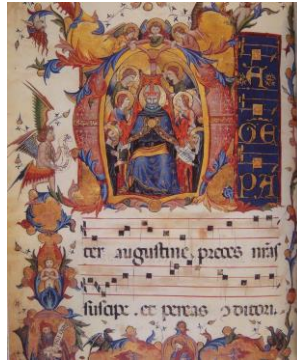 EA
GE
PA
ter augustine. preces nr̄as
suscipe. et per eas ꝯditori.